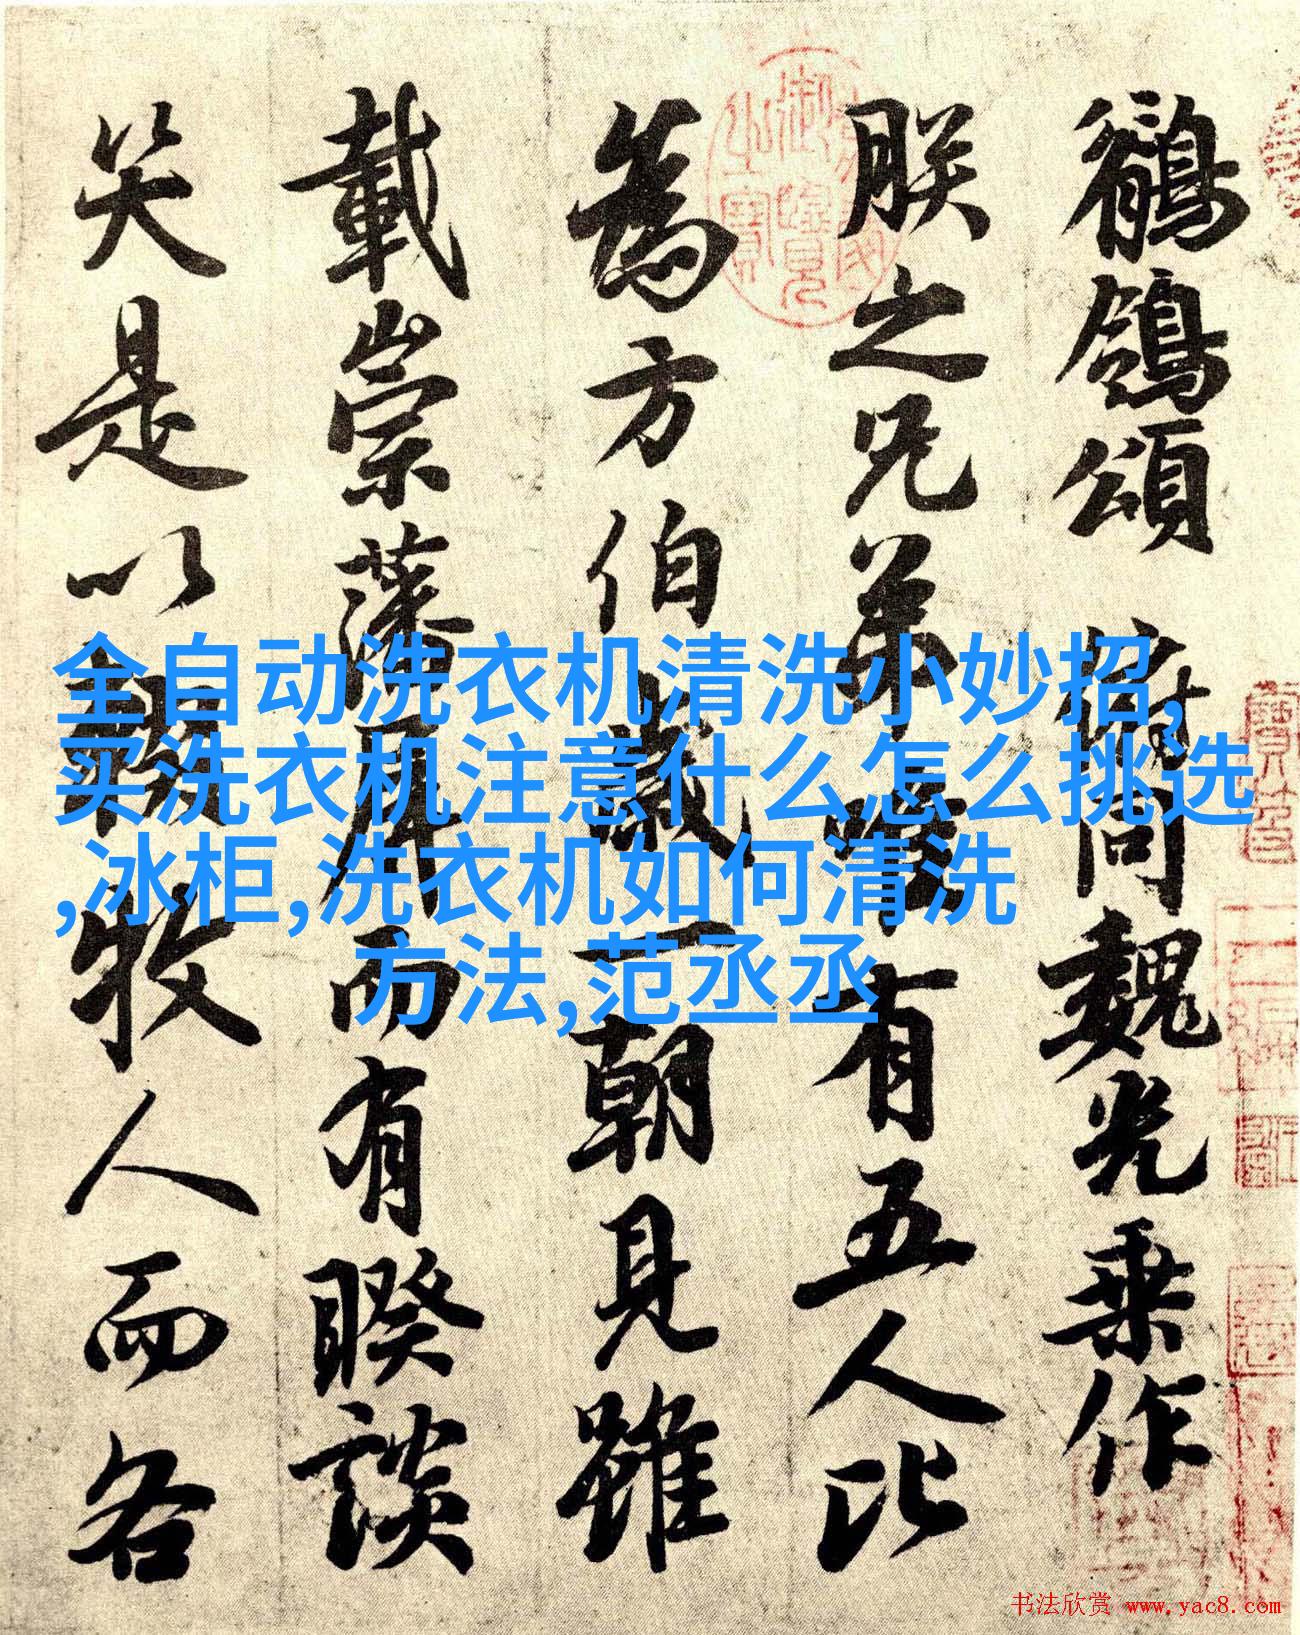 全自动洗衣机清洗小妙招,
买洗衣机注意什么怎么挑选
,冰柜,洗衣机如何清洗
方法,范丞丞
鶺鴒頌 俯同魏光乗作
朕之兄弟唯有五人比
為方伯歲一朝見雖
載崇藩屏而有睽談
笑是以輟牧人而各
书法欣赏 www.yac8.com